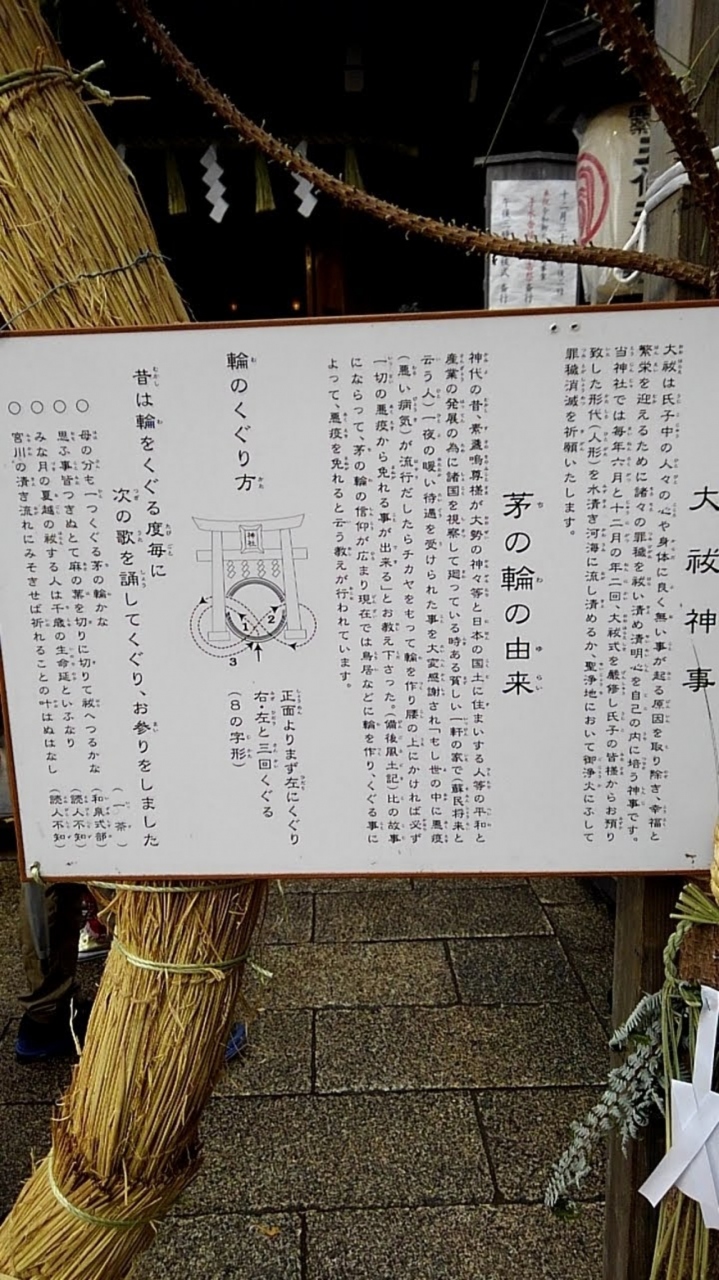 大祓神事
大祓は氏子中の人々の心や身体に良く無い事が起る原因を取り除き、幸福と
繁栄を迎えるために諸々の罪穢を祓い清め清明心を自己の内に培う神事です。
当神社では毎年六月と十二月の年二回、大祓式を厳修し氏子の皆様からお預り
致した形代(人形)を水清き河海に流し清めるか、聖浄地において御浄火にふして
罪穢消滅を祈願いたします。
茅の輪の由来
神代の昔、素盞嗚尊様が大勢の神々等と日本の国土に住まいする人等の平和と
産業の発展の為に諸国を視察して廻っている時ある貧しい一軒の家で(蘇民将来と
云う人)一夜の暖い待遇を受けられた事を大変感謝され「もし世の中に悪疫
(悪い病気)が流行だしたらチカヤをもって輪を作り腰の上にかければ必ず
一切の悪疫から免れる事が出来る」とお教え下さった。(備後風土記)比の故事
にならって、茅の輪の信仰が広まり現在では鳥居などに輪を作り、くぐる事に
よって、悪疫を免れると云う教えが行われています。
輪のくぐり方
神社
1
2
3
正面よりまず左にくぐり
右・左と三回くぐる
(8の字形)
昔は輪をくぐる度毎に
次の歌を誦してくぐり、お参りをしました
○ 母の分も一つくぐる茅の輪かな (一茶)
○ 思ふ事皆つきねとて麻の葉を切りに切りて祓へつるかな (和泉式部)
○ みな月の夏越の祓する人は千歳の生命延といふなり (読人不知)
○ 宮川の清き流れにみそぎせば祈れることの叶はぬはなし (読人不知)